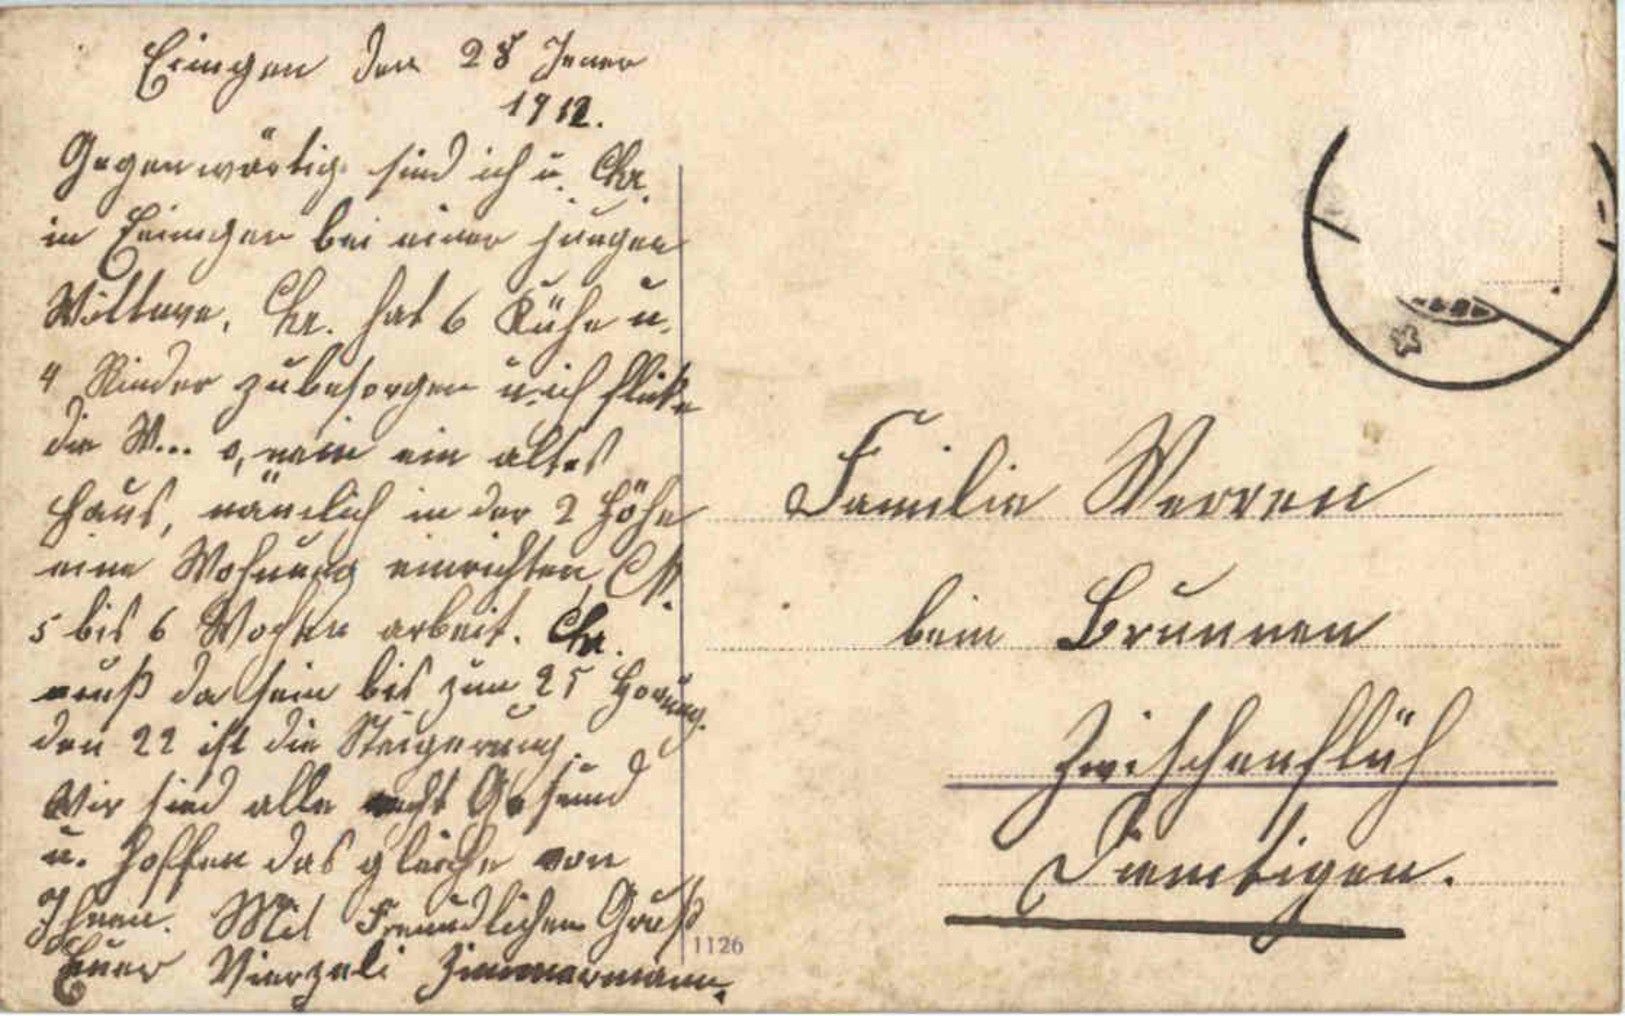 Einigen den 28 Jener
1912.
Gegenwärtig sind ich u. Chr.
in Einigen bei einer jungen
Wittwe, Chr. hat 6 Kühe u.
4 Rinder zubesorgen u. ich flicke
die W... o, nein ein altes
Haus, nämlich in der 2 Höhe
eine Wohnung einrichten,
5 bis 6 Wochen arbeit. Chr.
muß da sein bis zum 25 Hornung.
den 22 ist die Steigerung.
Wir sind alle recht Gesund
u. hoffen das gleiche von
Ihnen. Mit Freundlichem Gruß
Euer Zimmermann.
1126
Familie Werren
beim Brunnen
Zwischenflüh
Diemtigen.